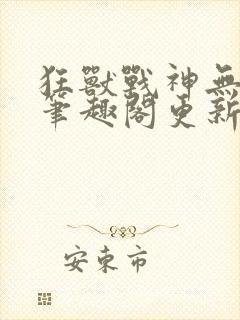 狂獸戰神無
筆趣閣更新
安東市